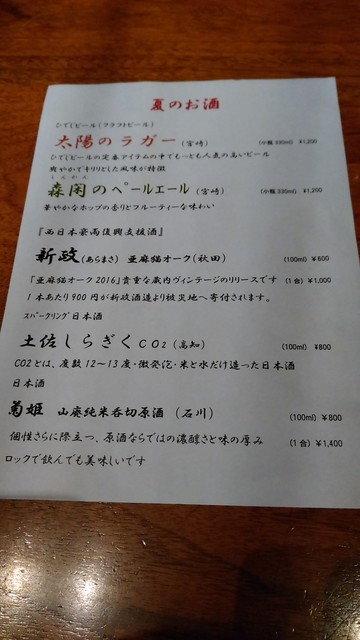 夏のお酒
ひでじビール(クラフトビール)
太陽のラガー(宮崎) (小瓶 330ml) ¥1,200
ひでじビールの定番アイテムの中でもっとも人気の高いビール
爽やかでキリリとした風味が特徴
しんかん
森閑のペールエール(宮崎) (小瓶 330ml) ¥1,200
華やかなホップの香りとフルーティーな味わい
『西日本豪雨復興支援酒』
新政(あらまさ) 亜麻猫オーク(秋田) (100ml) ¥600
「亜麻猫オーク2016」貴重な蔵内ヴィンテージのリリースです (1合) ¥1,000
1本あたり900円が新政酒造より被災地へ寄付されます。
スパークリング日本酒
土佐しらぎくCO2(高知) (100ml) ¥800
CO2とは、度数12～13度・微発泡・米と水だけ造った日本酒
日本酒
菊姫 山廃純米呑切原酒 (石川) (100ml) ¥800
個性さらに際立つ、原酒ならではの濃醇さと味の厚み (1合) ¥1,400
ロックで飲んでも美味しいです